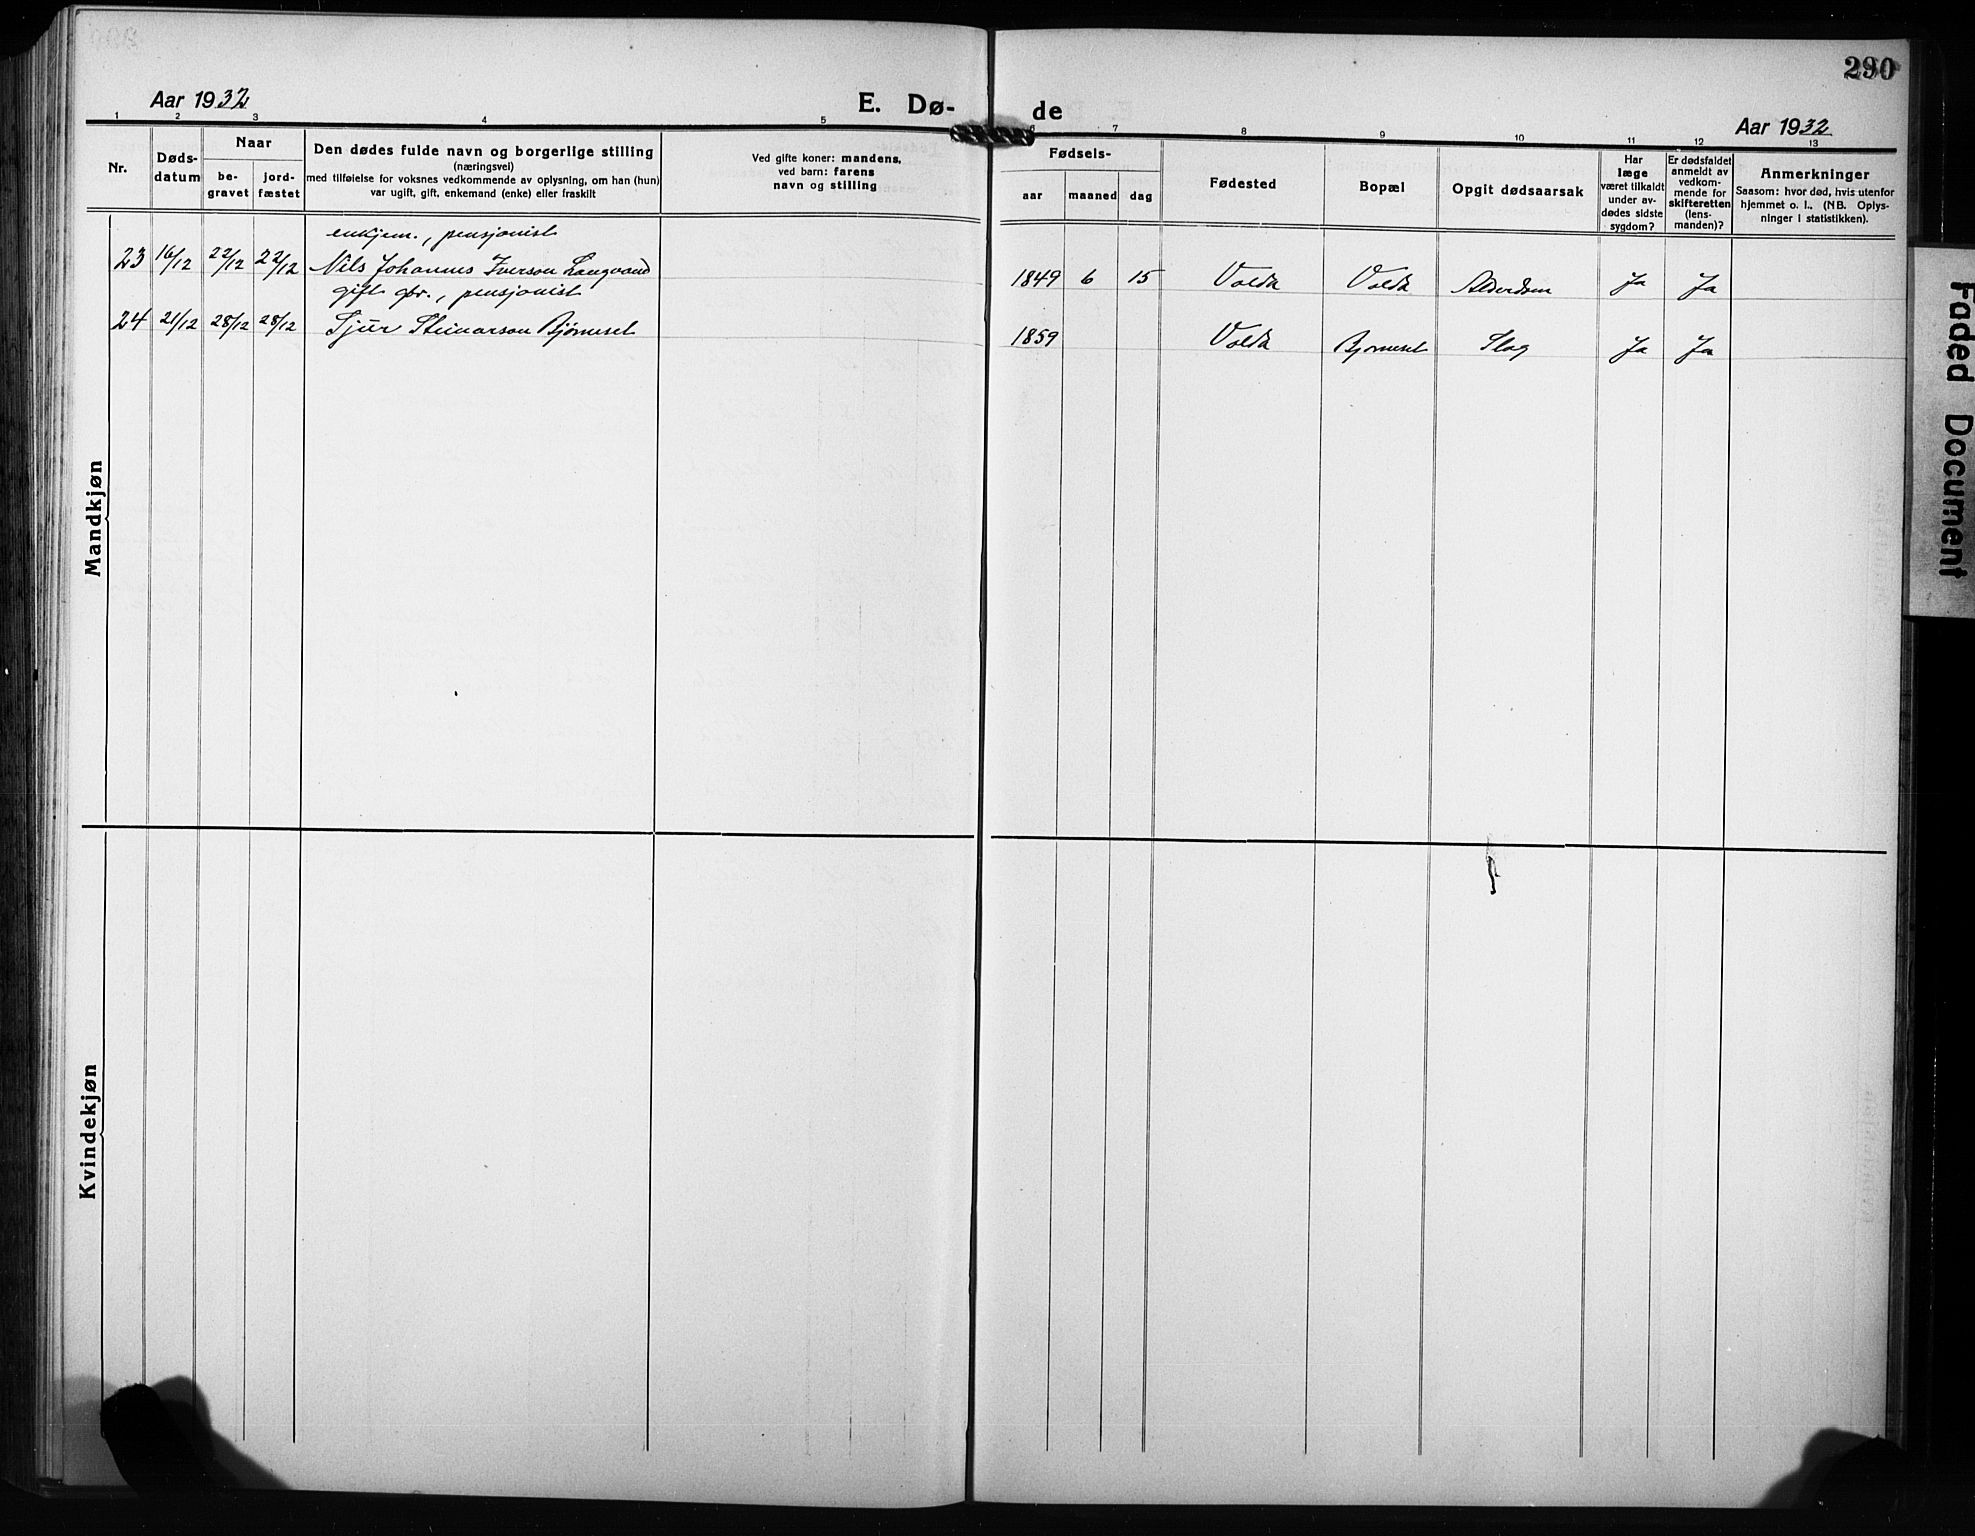 290
Aar 1932
E. Dø-
de
Aar 1932
1 2 3 4 5 6 7 8 9 10 11 12 13
Nr.
Døds-
datum
Naar
be-
gravet
jord-
fæstet
Den dødes fulde navn og borgerlige stilling
(næringsvei)
med tilføielse for voksnes vedkommende av oplysning, om han (hun)
var ugift, gift, enkemand (enke) eller fraskilt
Ved gifte koner: mandens,
ved barn: farens
navn og stilling
Fødsels-
aar maaned dag
Fødested
Bopæl
Opgit dødsaarsak
Har
læge
været tilkaldt
under av-
dødes sidste
sygdom?
Er dødsfaldet
anmeldt av
vedkom-
mende for
skifteretten
(lens-
manden)?
Anmerkninger
Saasom: hvor død, hvis utenfor
hjemmet o. l.. (NB. Oplys-
ninger i statistikken).
enkjem., pensjonist
23 16/12 22/12 22/12 Nils Johannes Iverson Langvand 1849 6 15 Volda Volda Alderdom Ja Ja
gift gbr., pensjonist
24 21/12 28/12 28/12 Sjur Steinarson Bjørneset 1859 Volda Bjørneset Slag Ja Ja
Mandkjøn
Kvindekjøn
Faded Document